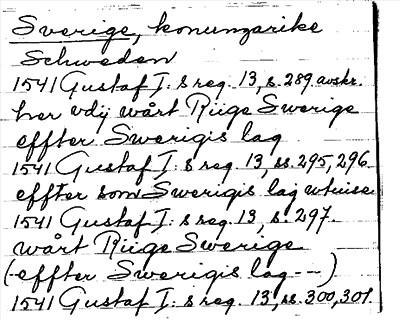 Sverige, konungarike
Schweden
1541 Gustaf I:s reg. 13, s. 289 avskr.
her vdij wårt Riige Swerige
effter Swerigis lag
1541 Gustaf I:s reg. 13, ss. 295, 296.
effter som Swerigis lag wtuise
1541 Gustaf I:s reg. 13, s. 297.
wårt Riige Swerige
(-effter Swerigis lag---)
1541 Gustaf I:s reg. 13, ss. 300, 301.